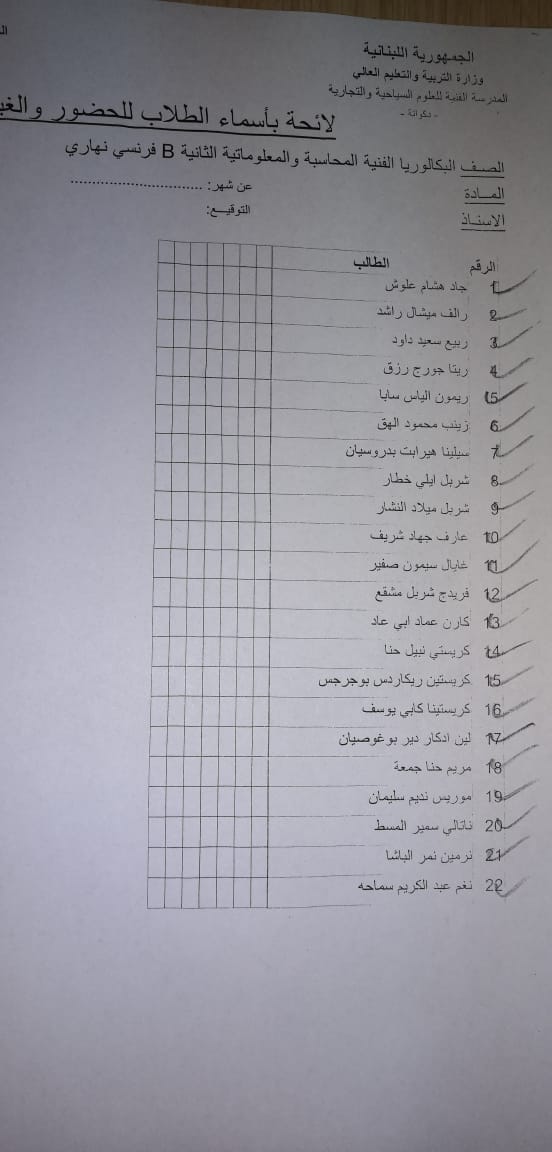 ال
الجمهورية اللبنانية
وزارة التربية والتعليم العالي
المدرسة الفنية للعلوم السياحية والتجارية
- دكوانة -
لائحة بأسماء الطلاب للحضور والغيـ
الصف البكالوريا الفنية المحاسبة والمعلوماتية الثانية B فرنسي نهاري
المـادة عن شهر: ..............................
الاستاذ التوقيـع:
الرقم الطالب
1 جاد هشام علوش
2 رالف ميشال راشد
3 ربيع سعيد داود
4 ريتا جورج رزق
15 ريمون الياس سابا
6 زينب محمود الهق
7 سيلينا هيرابت بدروسيان
8 شربل ايلي خطار
9 شربل ميلاد النشار
10 عارف جهاد شريف
11 غابال سيمون صفير
12 فريدج شربل مشقع
13 كارن عماد ابي عاد
14 كريستي نبيل حنا
15 كريستين ريكاردس بوجرجس
16 كريستينا كابي يوسف
17 لين ادكار دير بوغوصيان
18 مريم حنا جمعة
19 موريس نديم سليمان
20 ناتالي سمير المسط
21 نرمين نمر الباشا
22 نغم عبد الكريم سماحه